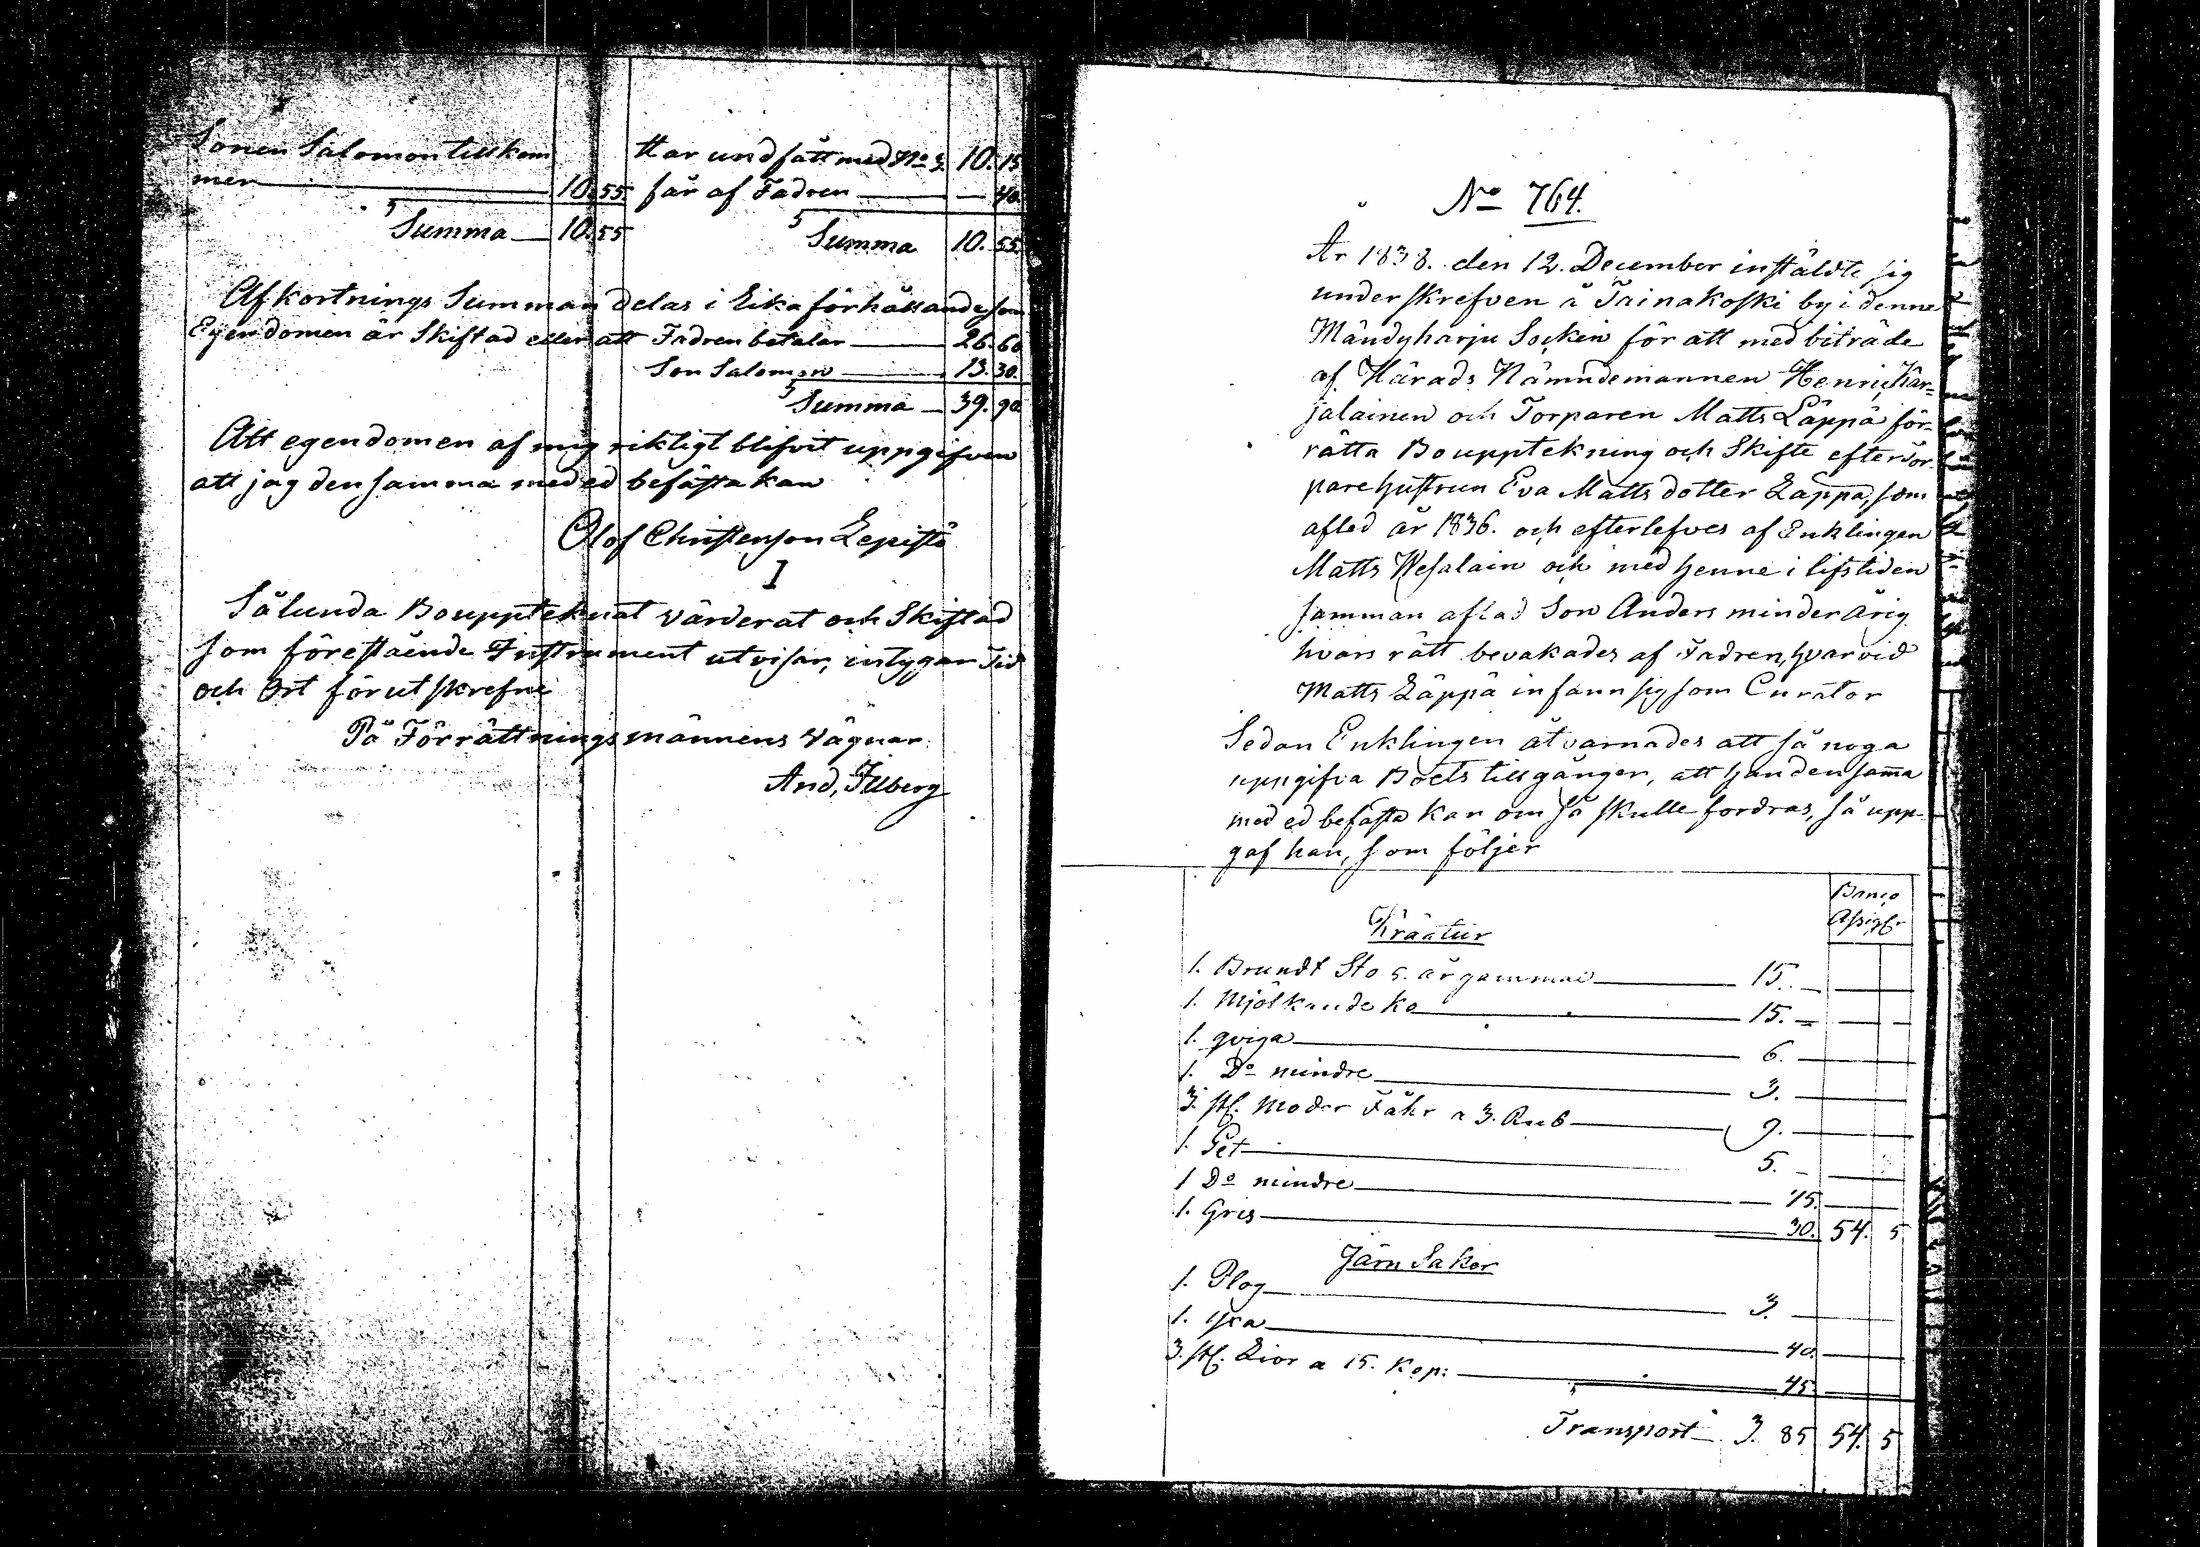 Sonen Salomon tillkom
mer — 10. 55.
Summa — 10. 55
Har undfått med No 3. 10. 15
får af Fadren — — 40.
Summa 10. 55.
Afkortnings Summan delas i lika förhållande som
Egendomen är Skiftad eller att Fadren betalar — 26. 60
Son Salomon — 13. 30.
Summa — 39. 90
Att egendomen af mig riktigt blifvit uppgifven
att jag densamma med ed befästa kan
Olof Christenson Lepistö
I
Sålunda Bouppteknat värderat och Skiftad
som förestående Instrument utvisar, intygar Tid
och Ort förutskrefne
På Förrättningsmännens Vägnar
And, Illberg
No 764.
År 1838. den 12. December inställdte sig
underskrefven å Tainakoski by i denne
Mändyharju Socken för att med biträde
af Härads Nämndemannen Henric Kar=
jalainen och Torparen Matts Läppä för-
rätta Bouppteckning och Skifte efter Tor-
pare hustrun Eva Matts dotter Läppä, som
afled år 1836. och efterlefves af Enklingen
Matts Wesalain och med henne i lifstiden
samman aflad Son Anders minderårig
hvars rätt bevakades af Fadren, hvarvid
Matts Läppä infann sig som Curator
Sedan Enklingen åtvarnades att så noga
uppgifva Boets tillgånger, att han densama
med ed befästa kan om så skulle fordras, så upp-
gaf han, som följer
Banco
Assigr
Kräatur
1. Brundt Sto 5. år gammal — 15. —
1. Mjölkande Ko — 15. —
1. qviga — 6. —
1. Do mindre — 3. —
3. st. Moder Fåhr a 3. Rub — 9. —
1. Get — 5. —
1 Do mindre — 75.
1. Gris — 30. 54. 5
Järn Saker
1. Plog — 3. —
1. yxa — 40.
3. st. Lior a 15. Kop: — 45.
Transport 3. 85 54. 5